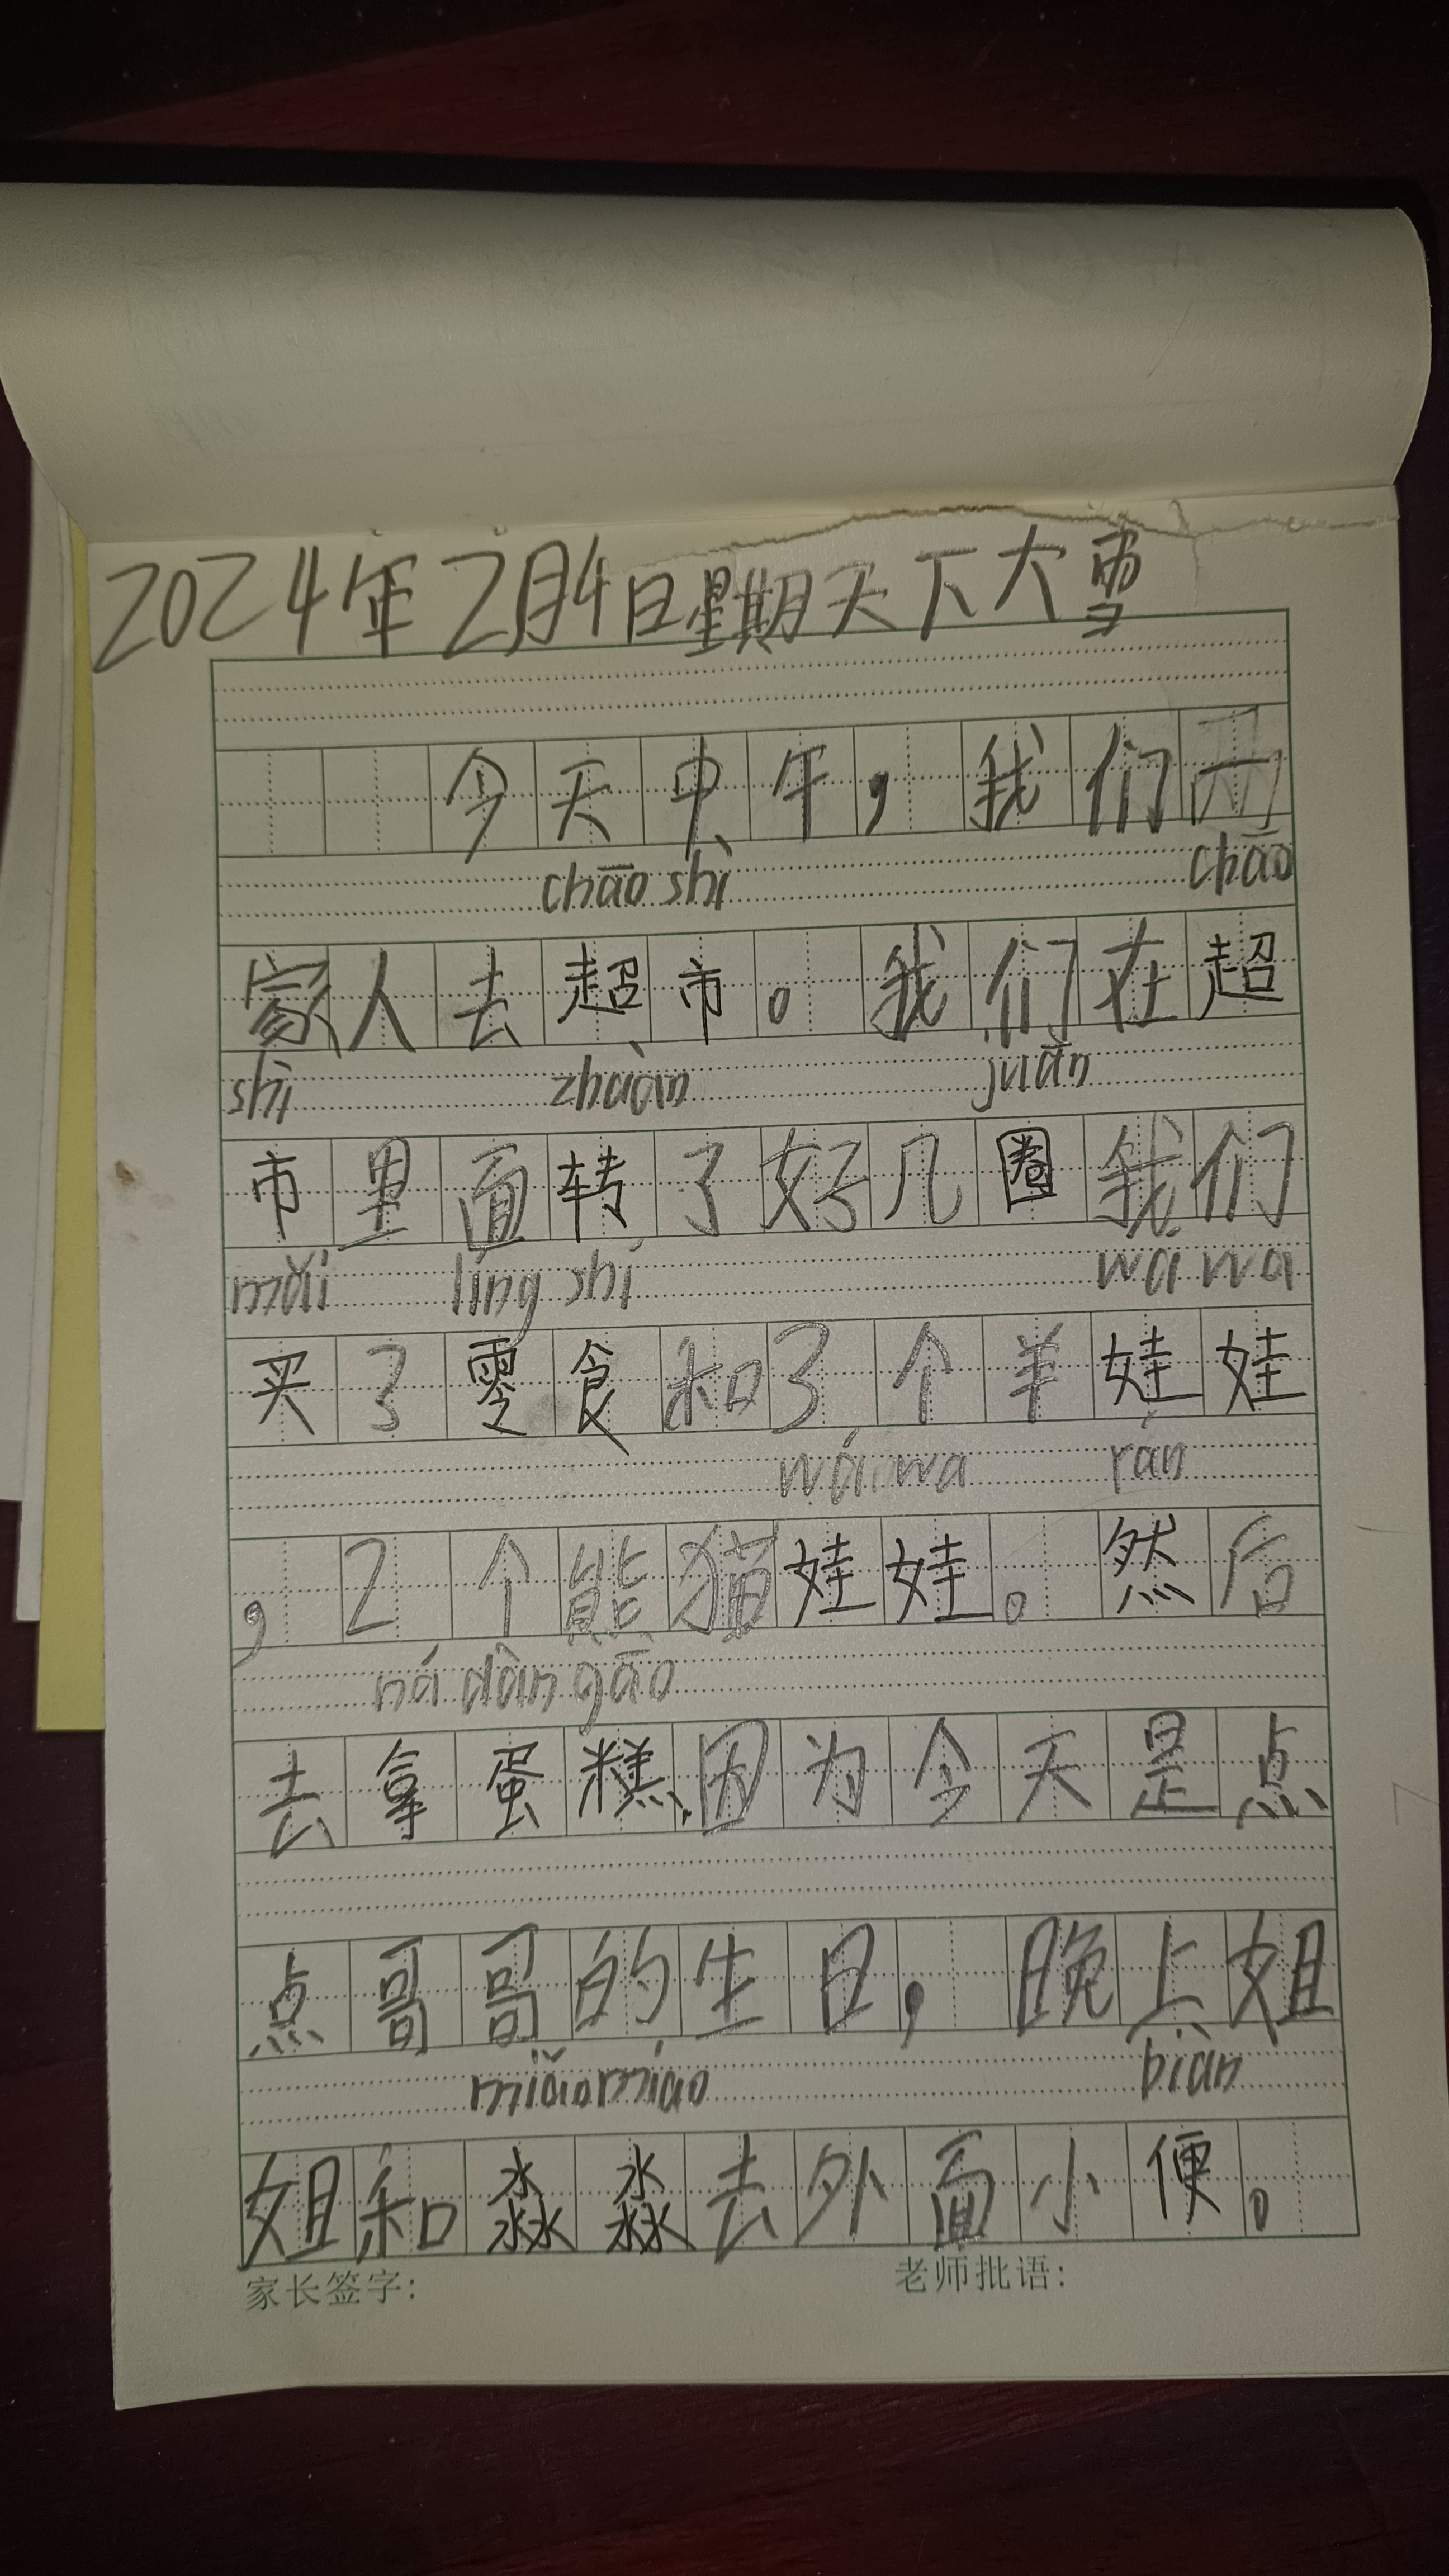 2024年2月4日星期天下大雪
今天中午，我们一
chāo shì chāo
家人去超市。我们在超
shì zhuàn juān
市里面转了好几圈我们
mǎi líng shí wá wa
买了零食和3个羊娃娃
wá wa rán
，2个熊猫娃娃。然后
ná dàn gāo
去拿蛋糕，因为今天是点
点哥哥的生日，晚上姐
miǎo miáo biàn
姐和淼淼去外面小便。
家长签字： 老师批语：